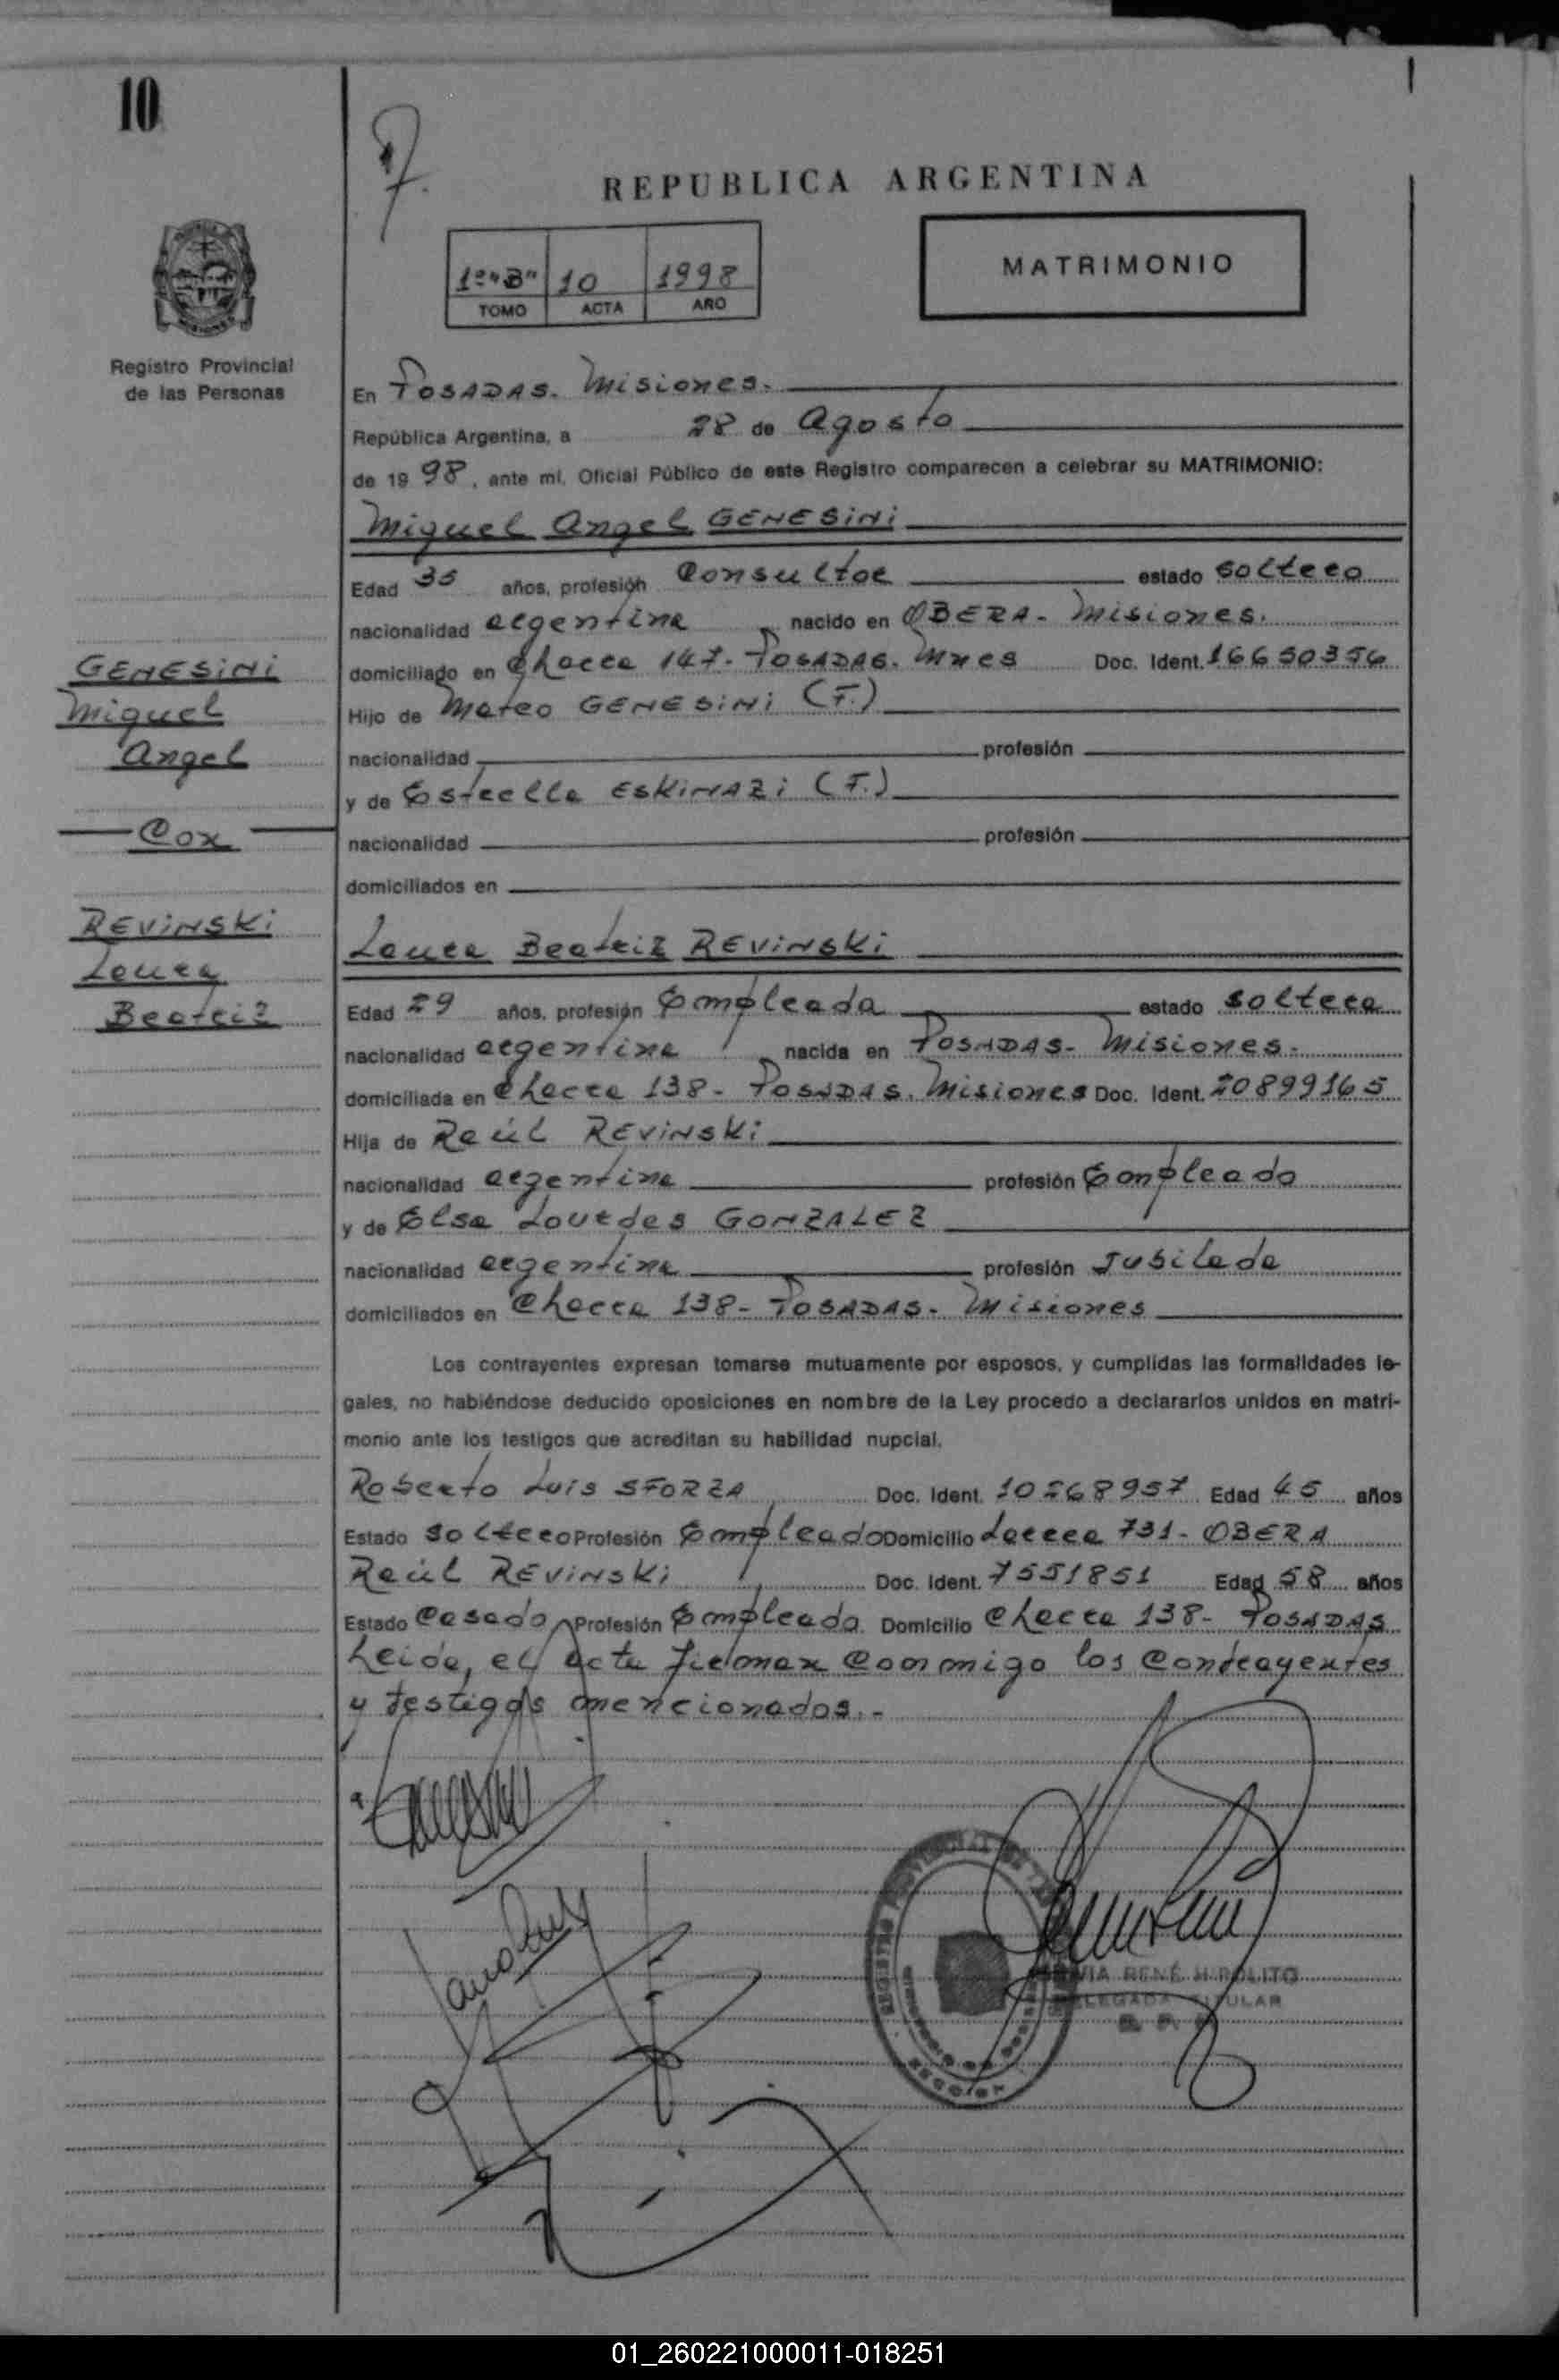 10
REPUBLICA ARGENTINA
1º "B" 10 1998
TOMO ACTA AÑO
MATRIMONIO
Registro Provincial
de las Personas
En POSADAS. Misiones.
República Argentina, a 28 de Agosto
de 19 98, ante mí, Oficial Público de este Registro comparecen a celebrar su MATRIMONIO:
Miguel Angel GENESINI
Edad 35 años, profesión Consultor estado soltero
nacionalidad argentina nacido en OBERA - Misiones.
domiciliado en Chacra 147. POSADAS. Mnes Doc. Ident. 16650356
Hijo de Mateo GENESINI (F.)
nacionalidad profesión
y de Estrella ESKINAZI (F.)
nacionalidad profesión
domiciliados en
GENESINI
Miguel
Angel
Con
REVINSKI
Laura
Beatriz
Laura Beatriz REVINSKI
Edad 29 años, profesión Empleada estado soltera
nacionalidad argentina nacida en POSADAS - Misiones.
domiciliada en Chacra 138 - POSADAS. Misiones Doc. Ident. 20899165
Hija de Raúl REVINSKI
nacionalidad argentina profesión Empleado
y de Elsa Lourdes GONZALEZ
nacionalidad argentina profesión Jubilada
domiciliados en Chacra 138 - POSADAS - Misiones
Los contrayentes expresan tomarse mutuamente por esposos, y cumplidas las formalidades le-
gales, no habiéndose deducido oposiciones en nombre de la Ley procedo a declararlos unidos en matri-
monio ante los testigos que acreditan su habilidad nupcial.
Roberto Luis SFORZA Doc. Ident. 10268957 Edad 45 años
Estado soltero Profesión Empleado Domicilio Larrea 731 - OBERA
Raúl REVINSKI Doc. Ident. 7551851 Edad 58 años
Estado Casado Profesión Empleado Domicilio Chacra 138 - POSADAS
Leida, el Acta firman conmigo los contrayentes
y testigos mencionados.-
RENÉ HIPOLITO
DELEGADA TITULAR
01_260221000011-018251